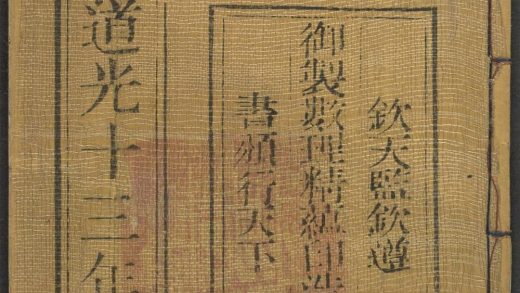 欽天監欽遵
御製數理精蘊印造
書頒行天下
道光十三年